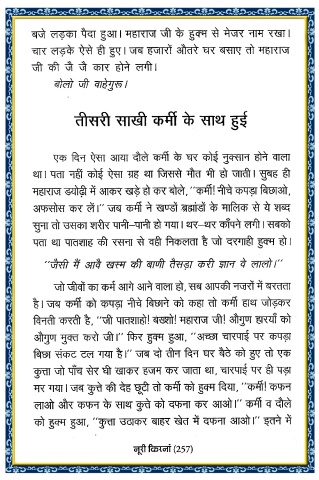 बजे लड़का पैदा हुआ। महाराज जी के हुक्म से मेजर नाम रखा।
चार लड़के ऐसे ही हुए। जब हजारों औतरे घर बसाए तो महाराज
जी की जै जै कार होने लगी।
बोलो जी वाहेगुरू।
तीसरी साखी कर्मी के साथ हुई
एक दिन ऐसा आया दौले कर्मी के घर कोई नुक्सान होने वाला
था। पता नहीं कोई ऐसा ग्रह था जिससे मौत भी हो जाती। सुबह ही
महाराज डयोढ़ी में आकर खड़े हो कर बोले, “कर्मी! नीचे कपड़ा बिछाओ,
अफसोस कर लें।” जब कर्मी ने खण्डों ब्रह्मांडों के मालिक से ये शब्द
सुना तो उसका शरीर पानी–पानी हो गया। थर–थर काँपने लगी। सबको
पता था पातशाह की रसना से वही निकलता है जो दरगाही हुक्म हो।
“जैसी मैं आवै खस्म की बाणी तैसड़ा करी ज्ञान वे लालो।”
जो जीवों का कर्म आगे आने वाला हो, सब आपकी नजरों में बरतता
है। जब कर्मी को कपड़ा नीचे बिछाने को कहा तो कर्मी हाथ जोड़कर
विनती करती है, “जी पातशाहो! बख्शो! महाराज जी! औगुण हारयाँ को
औगुण मुक्त करो जी।” फिर हुक्म हुआ, “अच्छा चारपाई पर कपड़ा
बिछा संकट टल गया है।” जब दो तीन दिन घर बैठे को हुए तो एक
कुत्ता जो पाँच सेर घी खाकर हजम कर जाता था, चारपाई पर ही पड़ा
मर गया। जब कुत्ते की देह छूटी तो कर्मी को हुक्म दिया, “कर्मी! कफन
लाओ और कफन के साथ कुत्ते को दफना कर आओ।” कर्मी व दौले
को हुक्म हुआ, “कुत्ता उठाकर बाहर खेत में दफना आओ।” इतने में
नूरी किरनां (257)